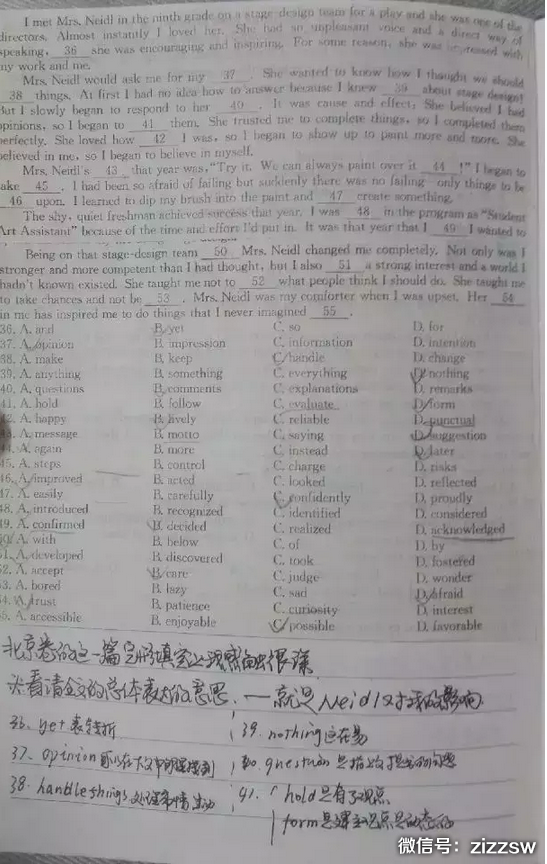 I met Mrs. Neidl in the ninth grade on a stage-design team for a play and she was one of the
directors. Almost instantly I loved her. She had an unpleasant voice and a direct way of
speaking, 36 she was encouraging and inspiring. For some reason, she was impressed with
my work and me.
Mrs. Neidl would ask me for my 37 . She wanted to know how I thought we should
38 things. At first I had no idea how to answer because I knew 39 about stage design!
But I slowly began to respond to her 40 . It was cause and effect: She believed I had
opinions, so I began to 41 them. She trusted me to complete things, so I completed them
perfectly. She loved how 42 I was, so I began to show up to paint more and more. She
believed in me, so I began to believe in myself.
Mrs. Neidl's 43 that year was, "Try it. We can always paint over it 44 !" I began to
take 45 . I had been so afraid of failing but suddenly there was no failing only things to be
46 upon. I learned to dip my brush into the paint and 47 create something.
The shy, quiet freshman achieved success that year. I was 48 in the program as "Student
Art Assistant" because of the time and effort I'd put in. It was that year that I 49 I wanted to
Being on that stage-design team 50 Mrs. Neidl changed me completely. Not only was I
stronger and more competent than I had thought, but I also 51 a strong interest and a world I
hadn't known existed. She taught me not to 52 what people think I should do. She taught me
to take chances and not be 53 . Mrs. Neidl was my comforter when I was upset. Her 54
in me has inspired me to do things that I never imagined 55 .
36. A. and B. yet C. so D. for
37. A. opinion B. impression C. information D. intention
38. A. make B. keep C. handle D. change
39. A. anything B. something C. everything D. nothing
40. A. questions B. comments C. explanations D. remarks
41. A. hold B. follow C. evaluate D. form
42. A. happy B. lively C. reliable D. punctual
43. A. message B. motto C. saying D. suggestion
44. A. again B. more C. instead D. later
45. A. steps B. control C. charge D. risks
46. A. improved B. acted C. looked D. reflected
47. A. easily B. carefully C. confidently D. proudly
48. A. introduced B. recognized C. identified D. considered
49. A. confirmed B. decided C. realized D. acknowledged
50. A. with B. below C. of D. by
51. A. developed B. discovered C. took D. fostered
52. A. accept B. care C. judge D. wonder
53. A. bored B. lazy C. sad D. afraid
54. A. trust B. patience C. curiosity D. interest
55. A. accessible B. enjoyable C. possible D. favorable
北京卷的这一篇完形填空让我感触很深
看清全文的总体表达的意思. 一 就是Neidl对我的影响
36. yet 表转折
37. opinion
38. handle things 处理事情
39. nothing
40. question
41. hold 是有了观点
form
微信号：zizzsw